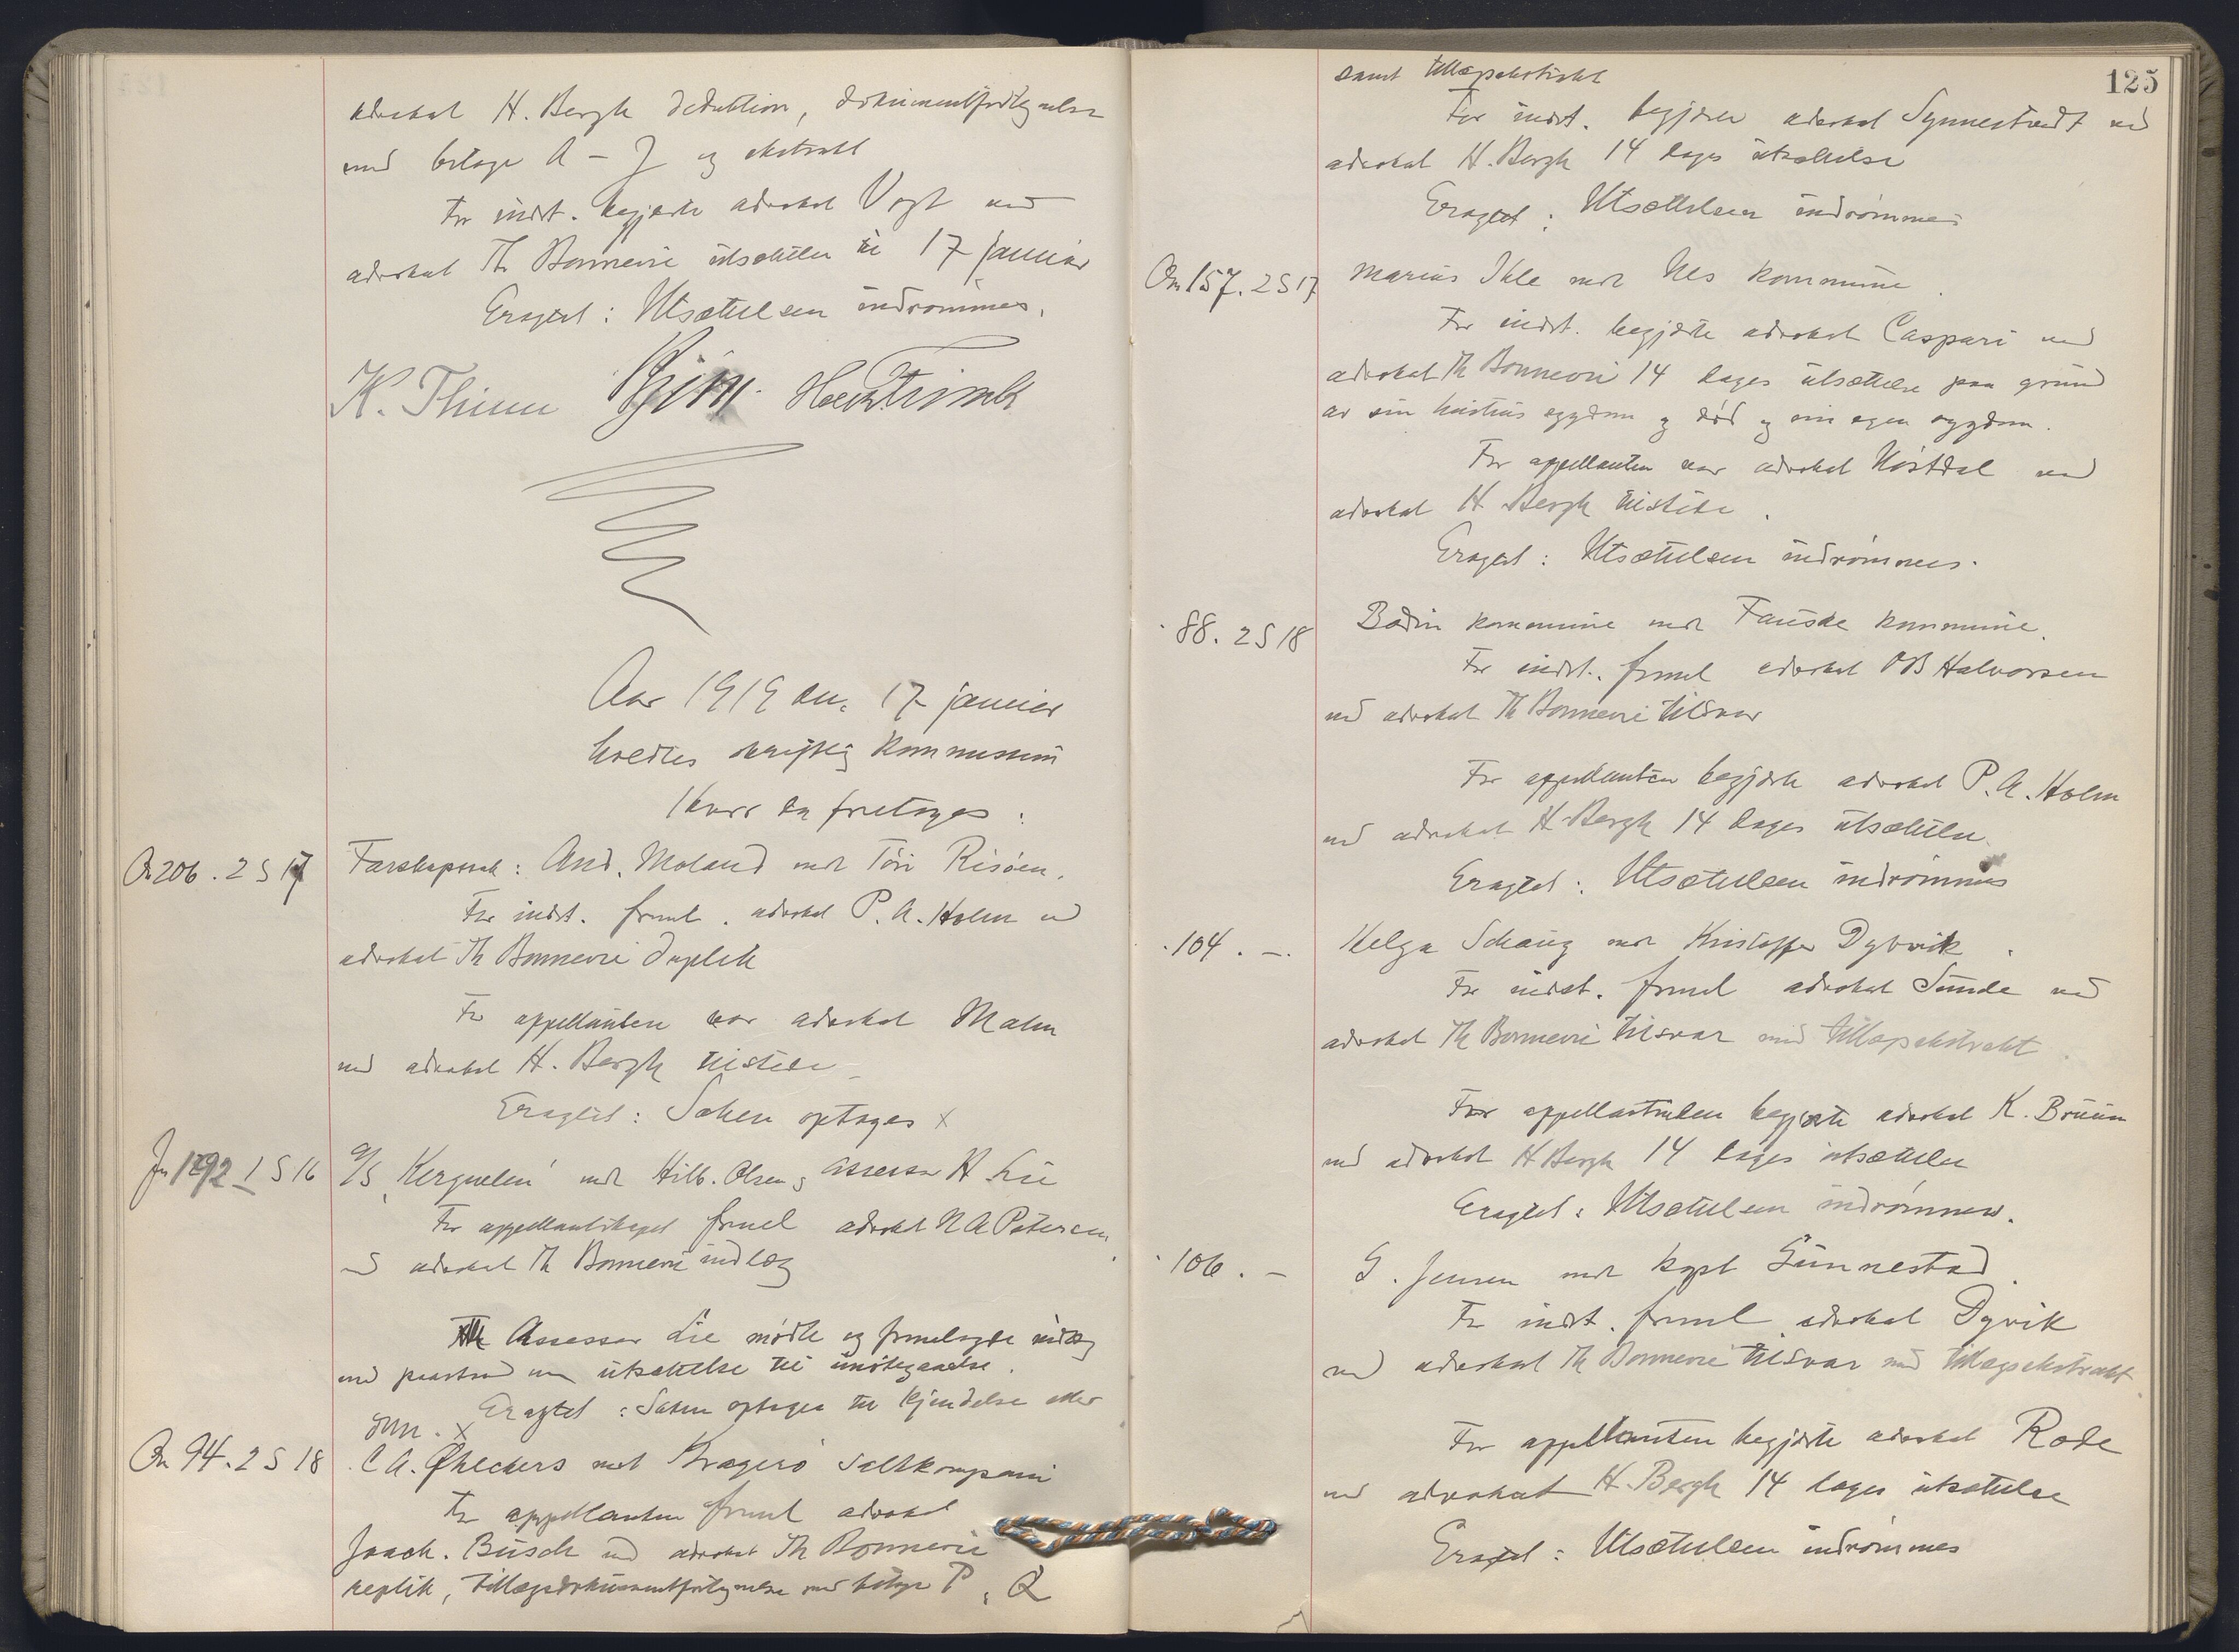 advokat H. Bergh deduktion, dokumentfortegnelse
med bilage A - J og ekstrakt
For indst. begjærte advokat Vogt ved
advokat Th Bonnevie utsættelse til 17 januar
Eragtet: Utsættelsen indrømmes.
K. Thinn
Aar 1919 den 17 januar
holdtes skriftlig kommission
Hvor da foretoges:
On 206. 2 S 17
Farskapssak: And. Moland mot Tori Risøen.
For indst. freml. advokat P. A. Holm ved
advokat Th Bonnevie duplik
For appellanten var advokat Malm
ved advokat H. Bergh tilstede
Eragtet: Saken optages x
Jn 1292 1 S 16
A/S "Kerguelen" mot Hilb. Olsen og assessor H Lie
For appellantskapet freml advokat N A Petersen
ved advokat Th Bonnevie indlæg
Assessor Lie møtte og fremlagde indlæg
med paastand om utsættelse til imøtegaaelse.
Eragtet: Saken optages til kjendelse eller
dom. x
On 94. 2 S 18
C A. Øhlckers mot Kragerø Saltkompani
For appellanten freml advokat
Joach. Busch ved advokat Th Bonnevie
replik, tillægsdokumentfortegnelse med bilage P, Q
125
samt tillægsekstrakt
For indst. begjærer advokat Synnestvedt ved
advokat H. Bergh 14 dages utsættelse
Eragtet: Utsættelsen indrømmes
On 157. 2 S 17
Marius Ihle mot Nes kommune.
For indst. begjærte advokat Caspari ved
advokat Th Bonnevie 14 dages utsættelse paa grund
av sin hustrus sygdom og død og sin egen sygdom.
For appellanten var advokat Hostdal ved
advokat H Bergh tilstede.
Eragtet: Utsættelsen indrømmes.
" 88. 2 S 18
Bodin kommune mot Fauske kommune.
For indst. freml advokat O B Halvorsen
ved advokat Th Bonnevie tilsvar
For appellanten begjærte advokat P. A. Holm
ved advokat H Bergh 14 dages utsættelse.
Eragtet: Utsættelsen indrømmes
" 104. -.
Helga Schaug mot Kristoffer Dybvik.
For indst. freml advokat Sunde ved
advokat Th Bonnevie tilsvar med tillægsekstrakt.
For appellantinden begjærte advokat K. Bruun
ved advokat H Bergh 14 dages utsættelse
Eragtet: Utsættelsen indrømmes.
" 106. -
G. Jensen mot kapt Gunnestad.
For indst. freml advokat Dyvik
ved advokat Th Bonnevie tilsvar med tillægsekstrakt.
For appellanten begjærte advokat Rode
ved advokat H. Bergh 14 dages utsættelse
Eragtet: Utsættelsen indrømmes